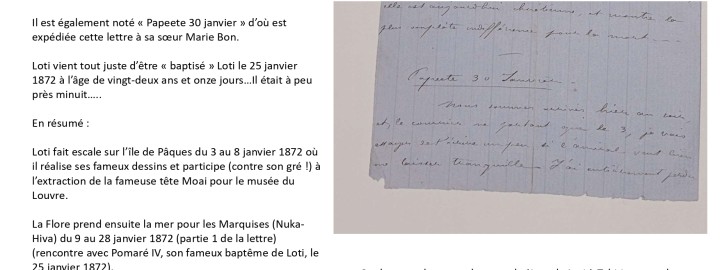 Il est également noté « Papeete 30 janvier » d'où est
expédiée cette lettre à sa sœur Marie Bon.
Loti vient tout juste d'être « baptisé » Loti le 25 janvier
1872 à l'âge de vingt-deux ans et onze jours…Il était à peu
près minuit…..
En résumé :
Loti fait escale sur l'île de Pâques du 3 au 8 janvier 1872 où
il réalise ses fameux dessins et participe (contre son gré !) à
l'extraction de la fameuse tête Moai pour le musée du
Louvre.
La Flore prend ensuite la mer pour les Marquises (Nuka-
Hiva) du 9 au 28 janvier 1872 (partie 1 de la lettre)
(rencontre avec Pomaré IV, son fameux baptême de Loti, le
25 janvier 1872).
elle est aujourd'hui chrétienne, et montre la
plus complète indifférence pour la mort
Papeete 30 Janvier
Nous sommes arrivés hier au soir
et, le courrier ne partant que le 3, je vais
t'écrire un peu si l'amiral veut bien
me laisser tranquille J'ai entièrement